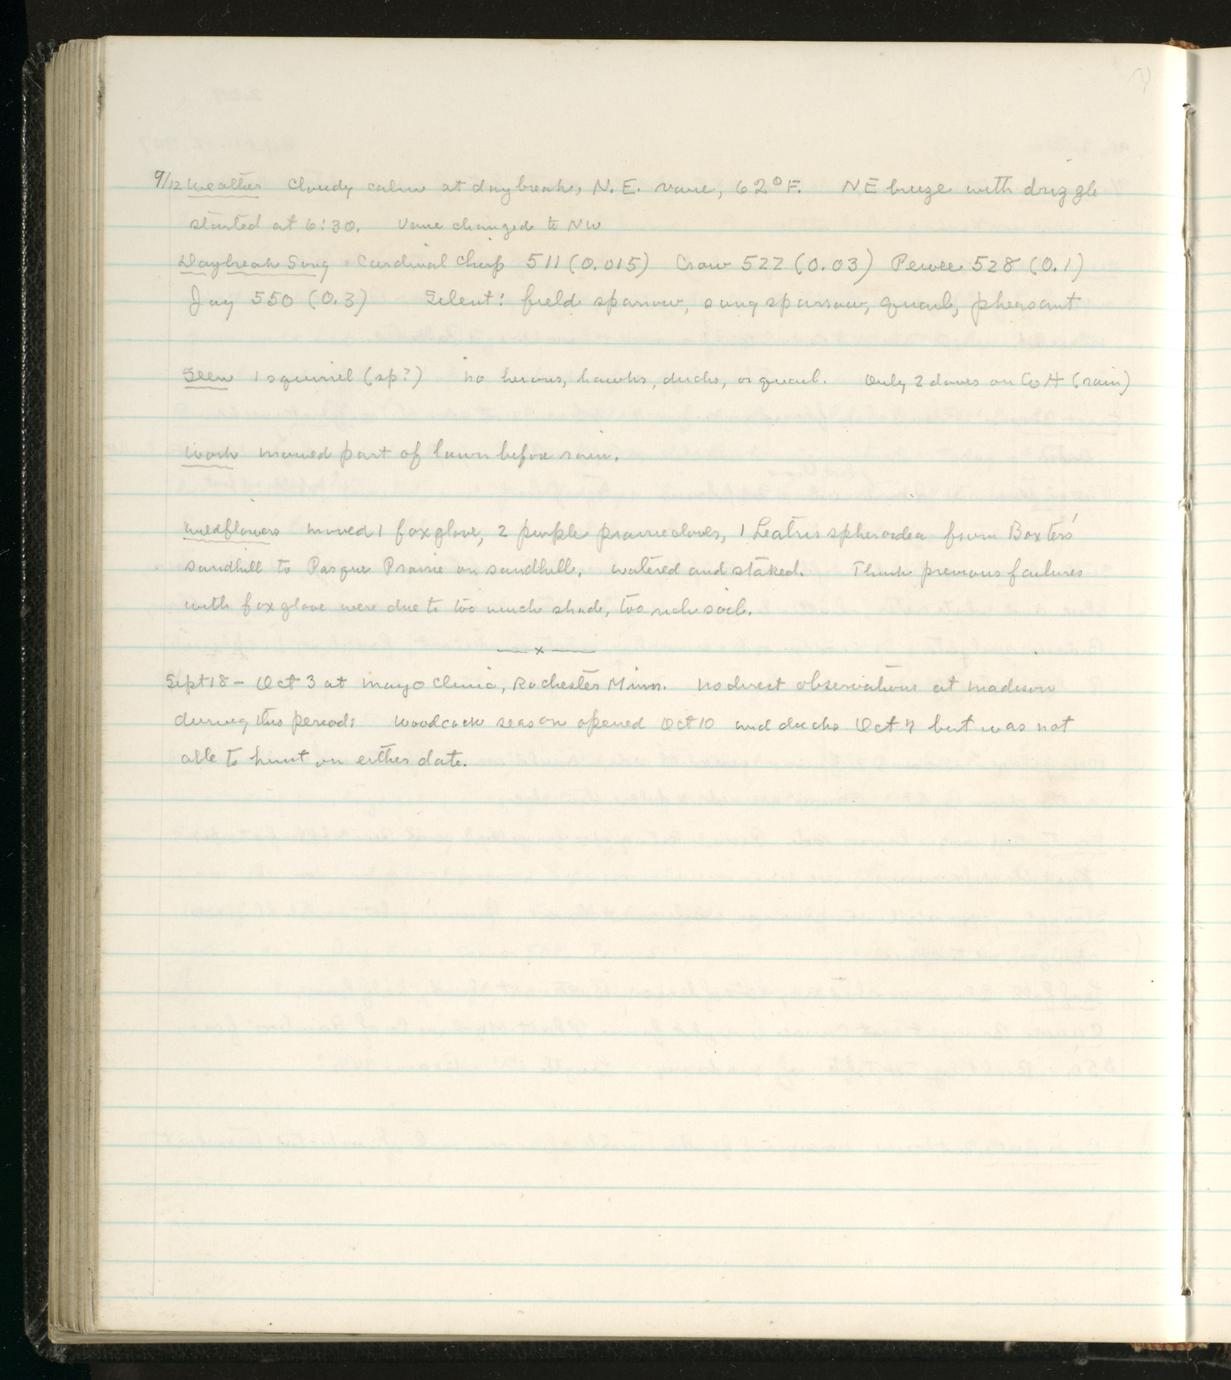 9/12 Weather Cloudy calm at daybreak, N.E. vane, 62° F. NE breeze with drizzle
started at 6:30. Vane changed to NW
Daybreak Song Cardinal chirp 511 (0.015) Crow 522 (0.03) Pewee 528 (0.1)
Jay 550 (0.3) Silent: field sparrow, song sparrow, quail, pheasant
Seen 1 squirrel (sp?) no herons, hawks, ducks, or quail. Only 2 doves on Co H (rain)
Work mowed part of lawn before rain.
Wildflowers moved 1 foxglove, 2 purple prairieclover, 1 Leatris spheroidea from Baxters'
sandhill to Pasque Prairie on sandhill. watered and staked. Think previous failures
with foxglove were due to too much shade, too rich soil.
—x—
Sept 18 - Oct 3 at Mayo Clinic, Rochester Minn. No direct observations at Madison
during this period: Woodcock season opened Oct 10 and ducks Oct 7 but was not
able to hunt on either date.